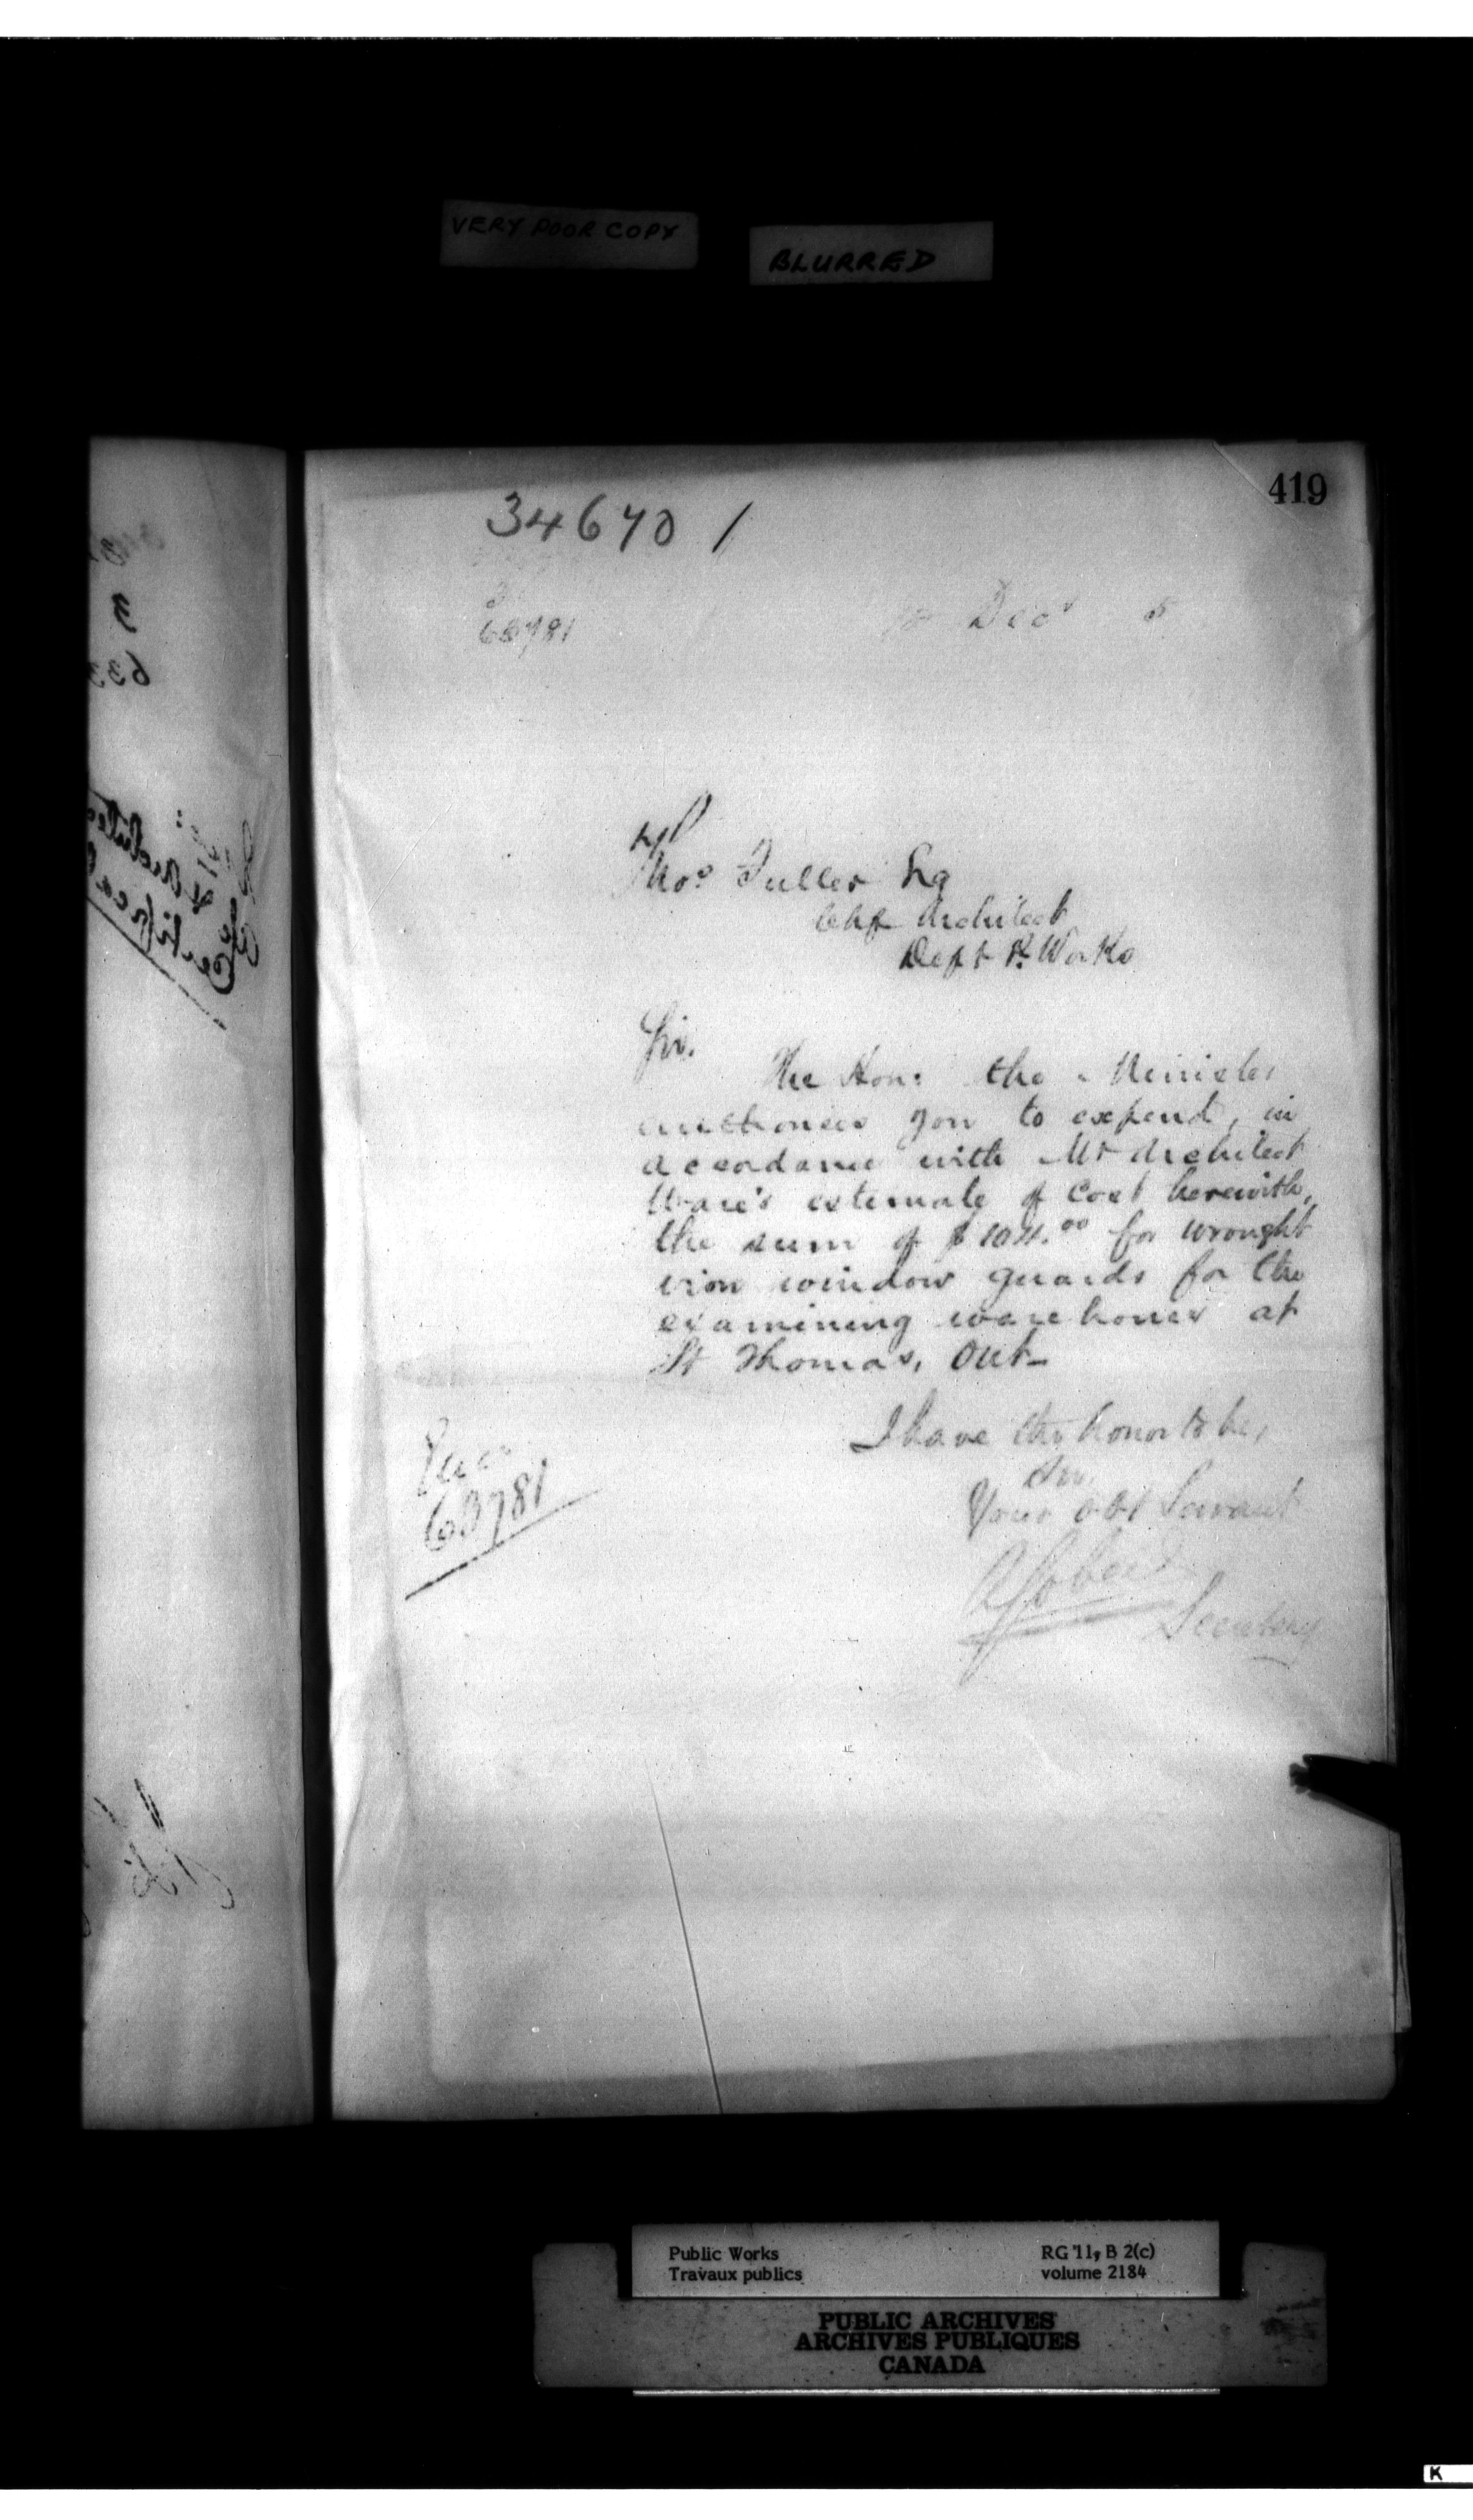 VERY POOR COPY
BLURRED
419
34670 /
63781
Dec 5
Thos Fuller Esq
Chf Architect
Dept P. Works
Sir.
The Hon: the Minister
authorises you to expend, in
accordance with Mr Architect
Ware's estimate of cost herewith,
the sum of $104.00 for wrought
iron window guards for the
examining warehouse at
St Thomas, Ont-
I have the honor to be,
Sir,
Your obt Servant
AGobeil
Secretary
63781
Public Works
Travaux publics
RG 11, B 2(c)
volume 2184
PUBLIC ARCHIVES
ARCHIVES PUBLIQUES
CANADA
K